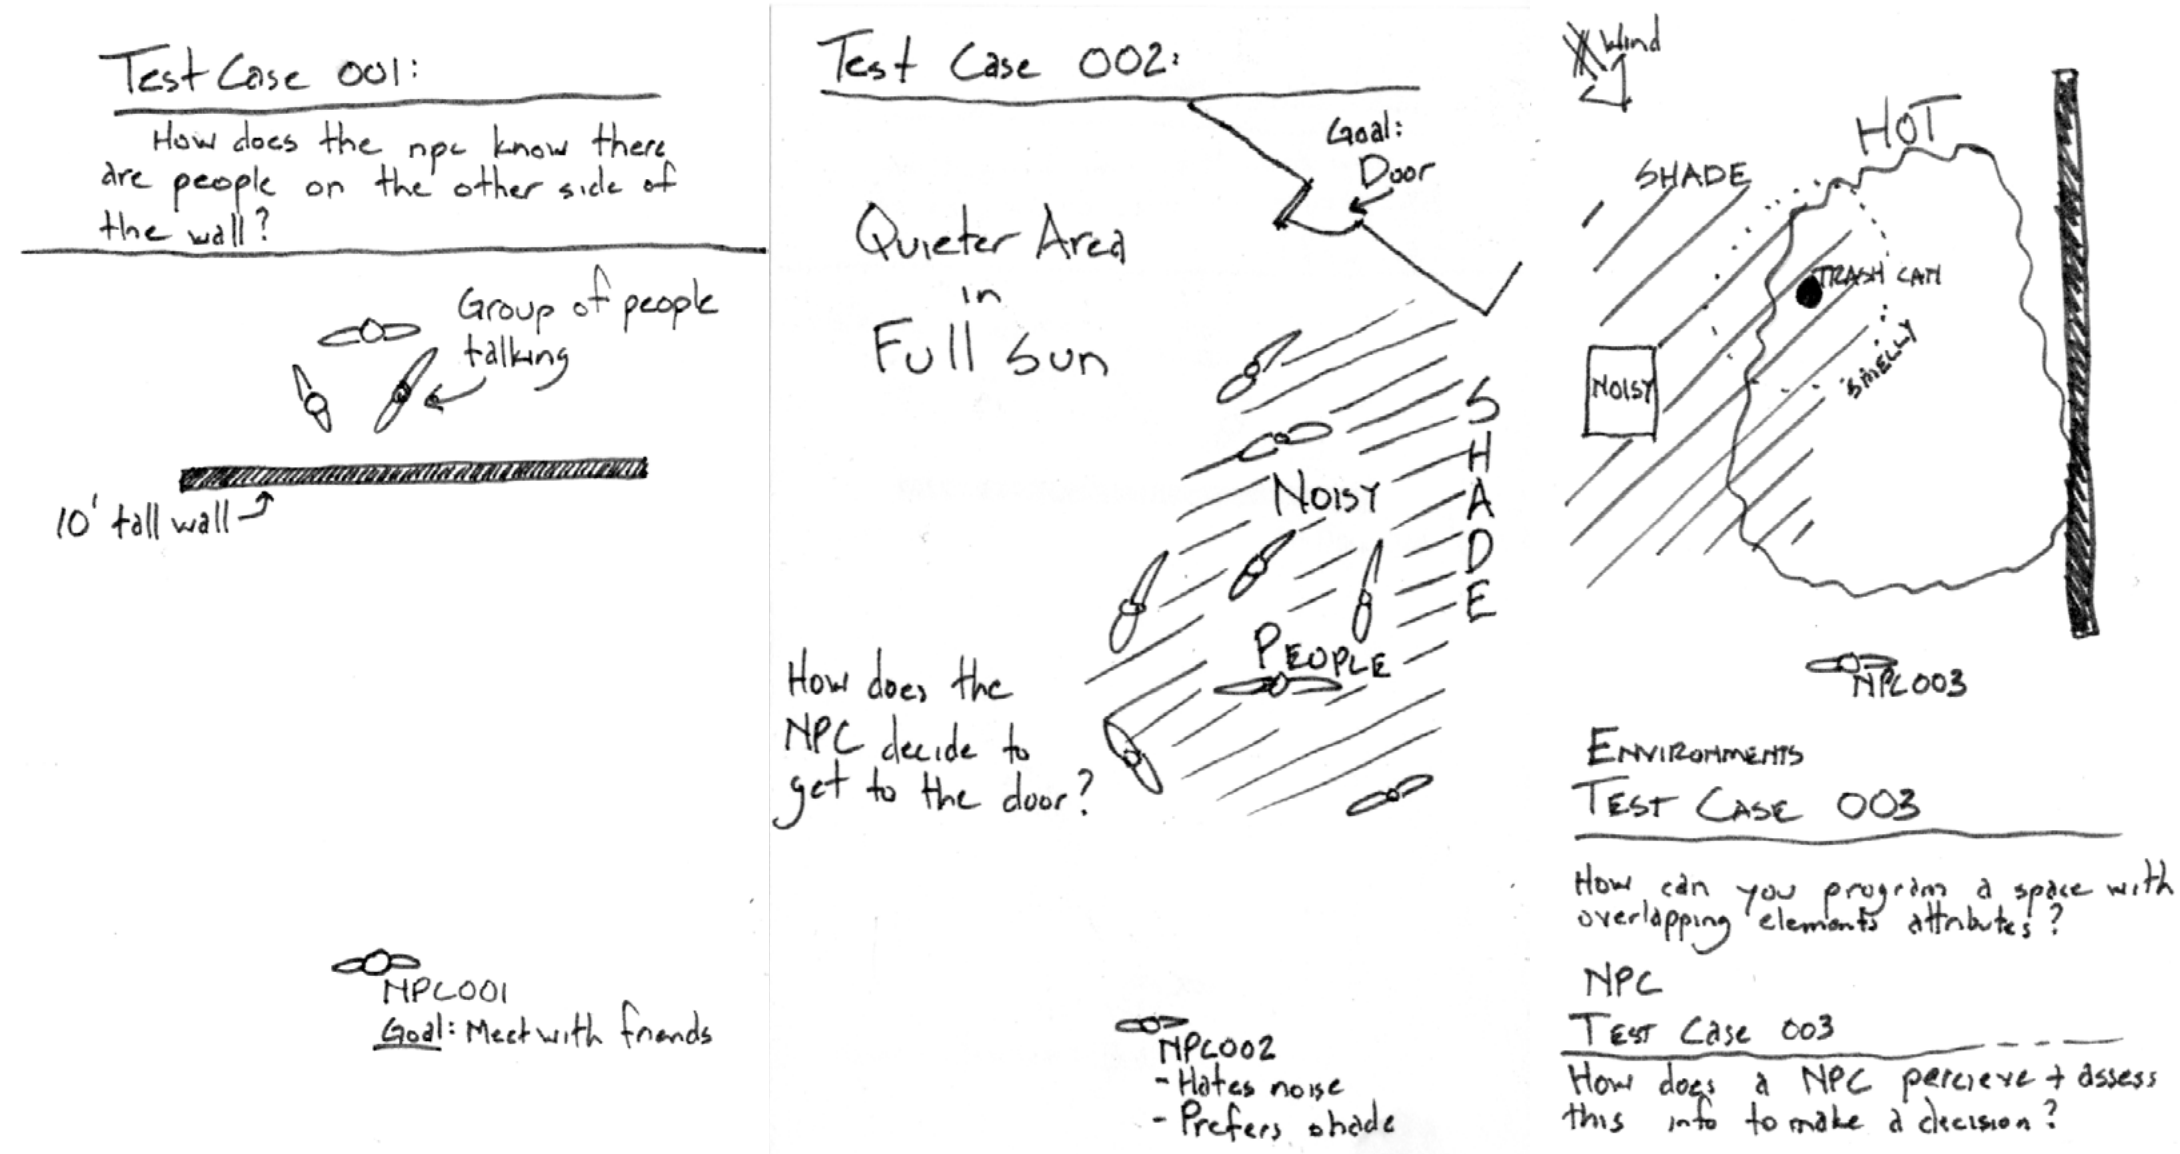 Test Case 001:
How does the npc know there
are people on the other side of
the wall?
Group of people
talking
10' tall wall
NPC001
Goal: Meet with friends
Test Case 002:
Goal:
Door
Quieter Area
in
Full Sun
SHADE
NOISY
PEOPLE
How does the
NPC decide to
get to the door?
NPC002
- Hates noise
- Prefers shade
Wind
HOT
SHADE
TRASH CAN
NOISY
SMELLY
NPC003
ENVIRONMENTS
TEST CASE 003
How can you program a space with
overlapping elements attributes?
NPC
TEST CASE 003
How does a NPC percieve + assess
this info to make a decision?